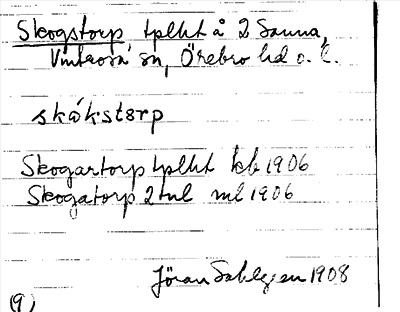 Skogstorp tplht å 2 Sanna,
Vintrosa sn, Örebro hd o. l.
skåkstorp
Skogartorp tplht kb 1906
Skogatorp 2 tul ml 1906
Jöran Sahlgren 1908
(9)